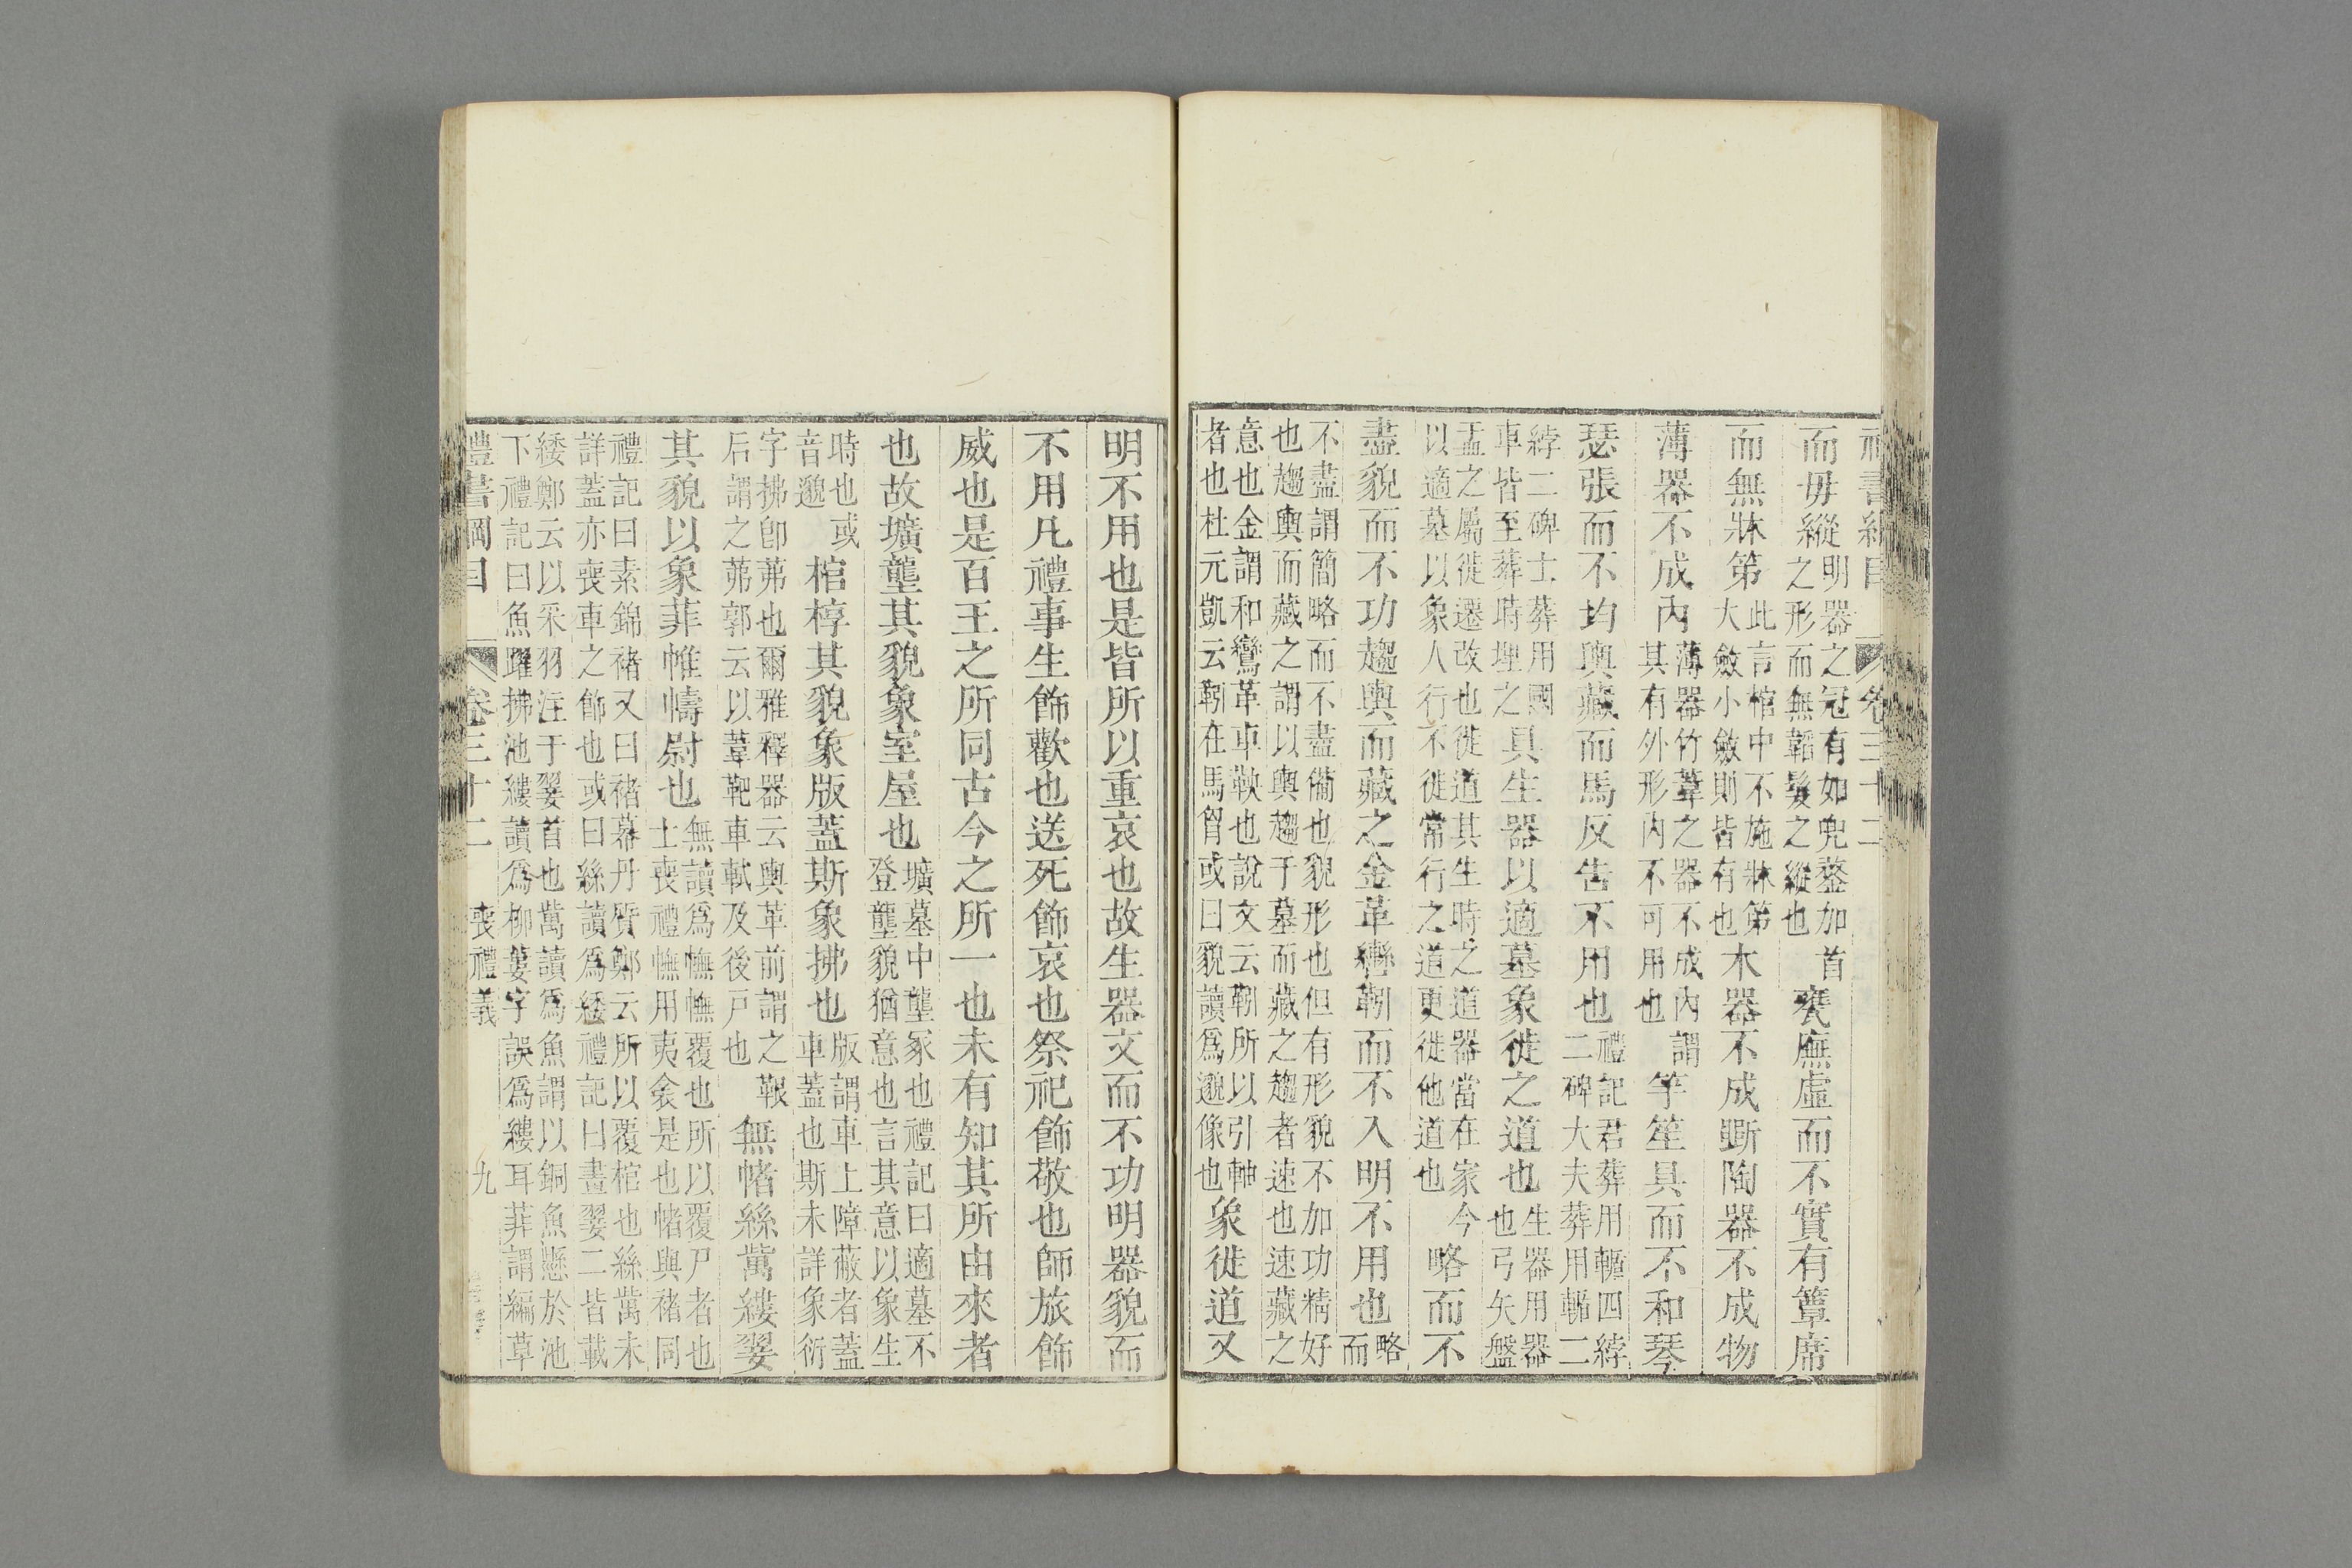 禮書綱目 卷三十二
而毋縱明器之冠有如兜鍪加首
之形而無韜髮之縰也甕廡虛而不實有簟席
而無牀第此言棺中不施牀第
大斂小斂則皆有也木器不成斵陶器不成物
薄器不成內薄器竹葦之器不成內謂
其有外形內不可用也竽笙具而不和琴
瑟張而不均輿藏而馬反告不用也禮記君葬用輴四綍
二碑大夫葬用輴二
綍二碑士葬用國
車皆至葬時埋之具生器以適墓象徙之道也生器用器
也弓矢盤
盂之屬徙遷改也徙道其生時之道器當在家今
以適墓以象人行不徙常行之道更徙他道也略而不
盡貌而不功趨輿而藏之金革轡靷而不入明不用也略
而
不盡謂簡略而不盡備也貌形也但有形貌不加功精好
也趨輿而藏之謂以輿趨于墓而藏之趨者速也速藏之
意也金謂和鸞革車鞅也說文云靷所以引軸
者也杜元凱云靷在馬胷或曰貌讀爲邈像也象徙道又
明不用也是皆所以重哀也故生器文而不功明器貌而
不用凡禮事生飾歡也送死飾哀也祭祀飾敬也師旅飾
威也是百王之所同古今之所一也未有知其所由來者
也故壙壟其貌象室屋也壙墓中壟冢也禮記曰適墓不
登壟貌猶意也言其意以象生
時也或
音邈棺椁其貌象版蓋斯象拂也版謂車上障蔽者蓋
車蓋也斯未詳象衍
字拂卽茀也爾雅釋器云輿革前謂之鞎
后謂之茀郭云以韋靶車軾及後戶也無帾絲歶縷翣
其貌以象菲帷幬尉也無讀爲幠幠覆也所以覆尸者也
士喪禮幠用夷衾是也帾與褚同
禮記曰素錦褚又曰褚幕丹質鄭云所以覆棺也絲歶未
詳蓋亦喪車之飾也或曰絲讀爲緌禮記曰畫翣二皆載
緌鄭云以采羽注于翣首也歶讀爲魚謂以銅魚懸於池
下禮記曰魚躍拂池縷讀爲柳蔞字誤爲縷耳菲謂編草
禮書綱目 卷三十二 喪禮義 九